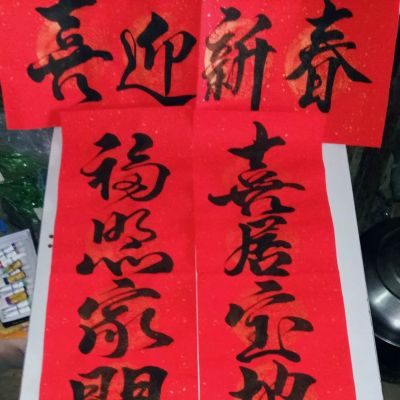 喜迎新春
喜居宝地
福照家門